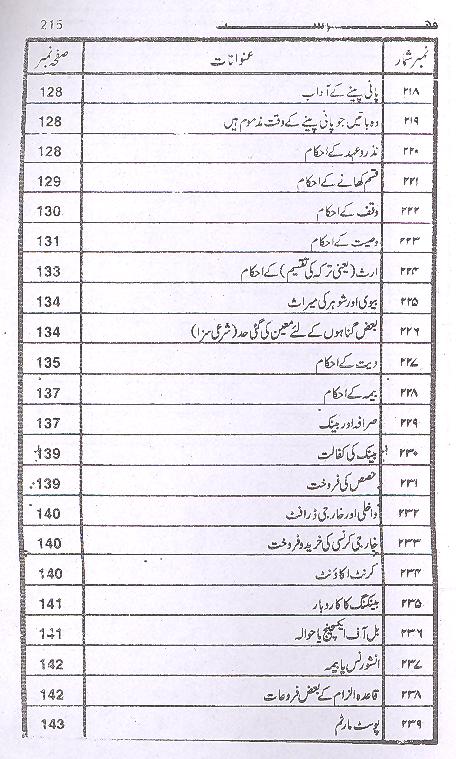 215
نمبر شمار عنوانات صفحہ نمبر
۲۱۸ پانی پینے کے آداب 128
۲۱۹ وہ باتیں جو پانی پینے کے وقت مذموم ہیں 128
۲۲۰ نذر و عہد کے احکام 128
۲۲۱ قسم کھانے کے احکام 129
۲۲۲ وقف کے احکام 130
۲۲۳ وصیت کے احکام 131
۲۲۴ ارث (یعنی ترکہ کی تقسیم) کے احکام 133
۲۲۵ بیوی اور شوہر کی میراث 134
۲۲۶ بعض گناہوں کے لئے معین کی گئی حد (شرعی سزا) 134
۲۲۷ دیت کے احکام 135
۲۲۸ بیمہ کے احکام 137
۲۲۹ صرافہ اور بینک 137
۲۳۰ بینک کی کفالت 139
۲۳۱ حصص کی فروخت 139
۲۳۲ داخلی اور خارجی ڈرافٹ 140
۲۳۳ خارجی کرنسی کی خرید و فروخت 140
۲۳۴ کرنٹ اکاؤنٹ 140
۲۳۵ بینکنگ کا کاروبار 141
۲۳۶ بل آف ایکسچینج یا حوالہ 141
۲۳۷ انشورنس یا بیمہ 142
۲۳۸ قاعدہ الزام کے بعض فروعات 142
۲۳۹ پوسٹ مارٹم 143